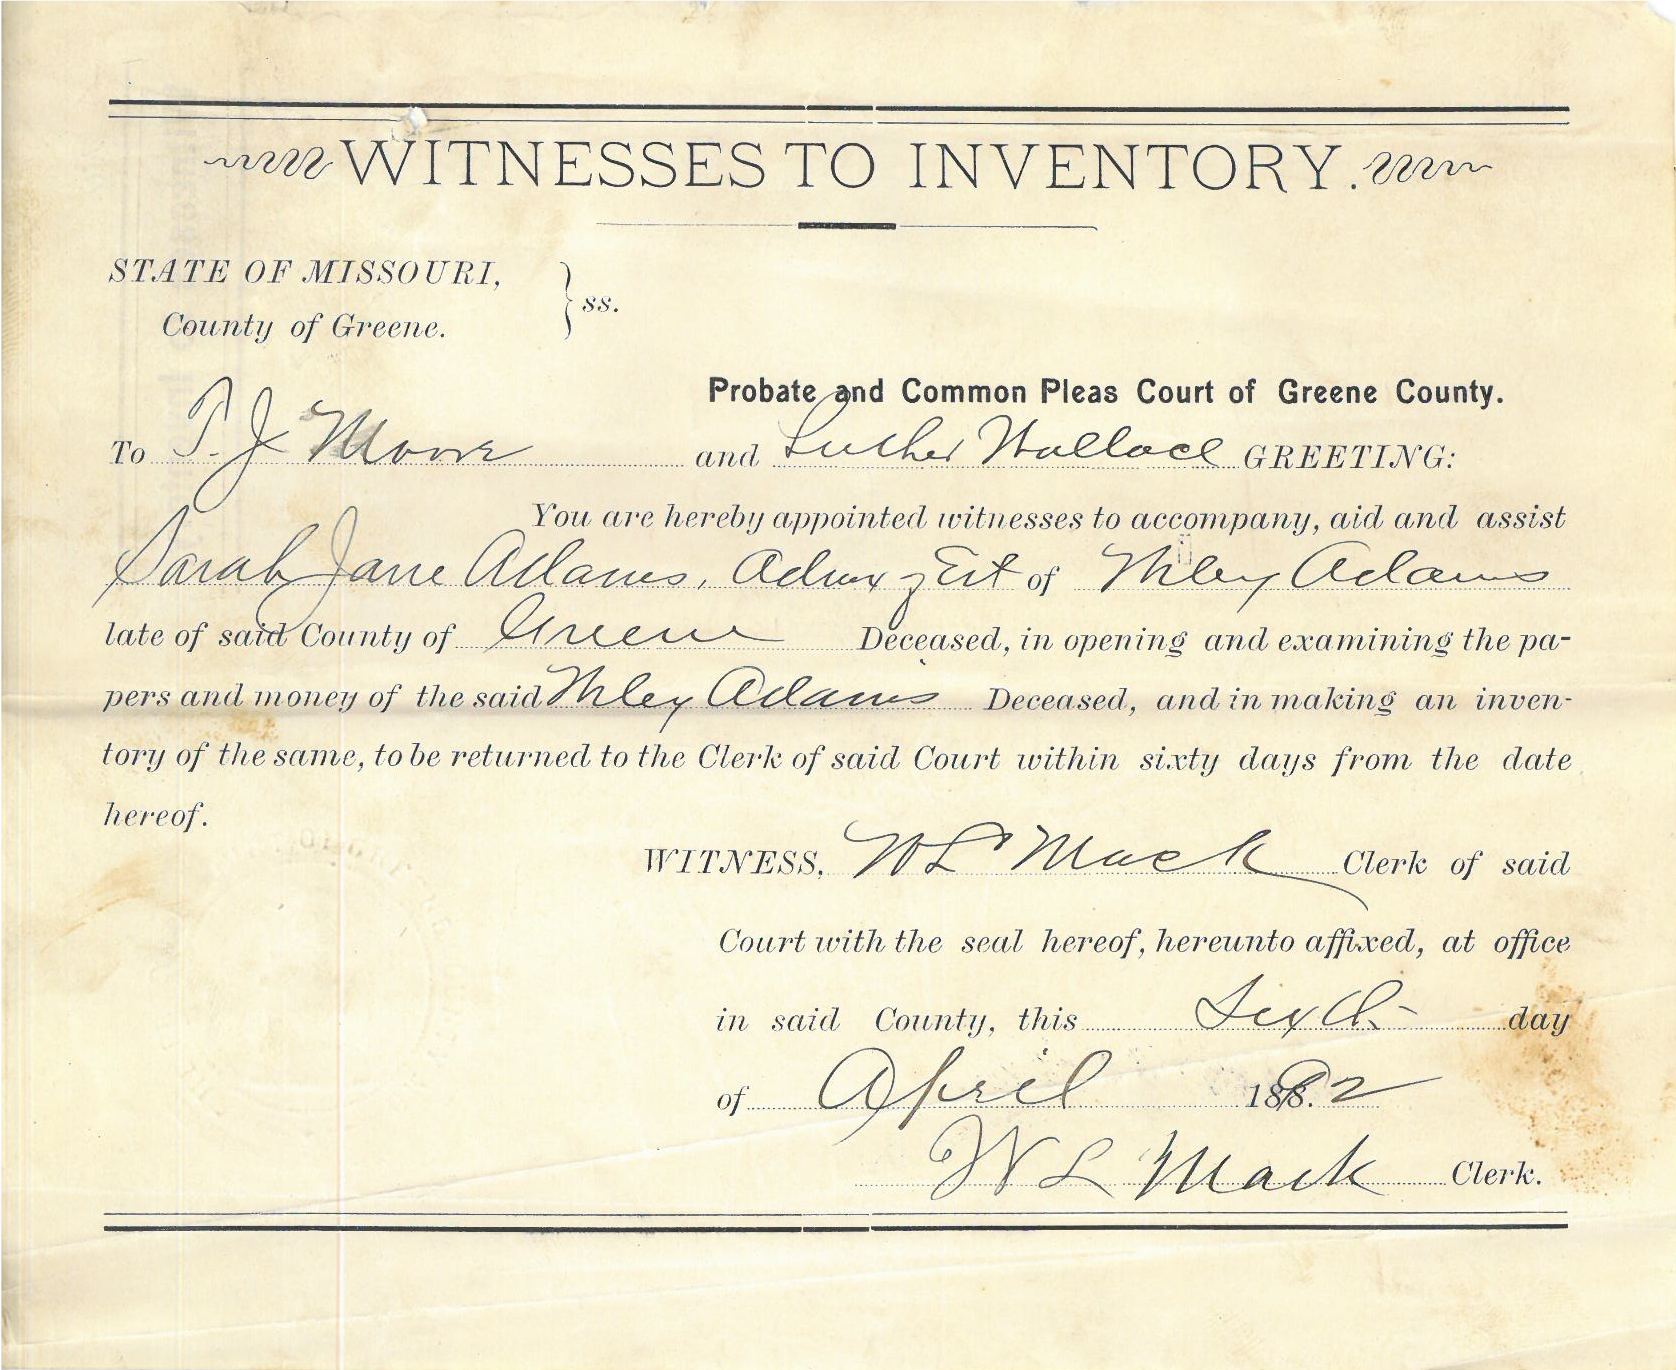 WITNESSES TO INVENTORY.
STATE OF MISSOURI,
County of Greene. } ss.
Probate and Common Pleas Court of Greene County.
To T. J. Moore and Luther Wallace GREETING:
You are hereby appointed witnesses to accompany, aid and assist
Sarah Jane Adams, Admx of Est of Wiley Adams
late of said County of Greene Deceased, in opening and examining the pa-
pers and money of the said Wiley Adams Deceased, and in making an inven-
tory of the same, to be returned to the Clerk of said Court within sixty days from the date
hereof.
WITNESS, W L Mack Clerk of said
Court with the seal hereof, hereunto affixed, at office
in said County, this Sixth day
of April 1892
W L Mack Clerk.